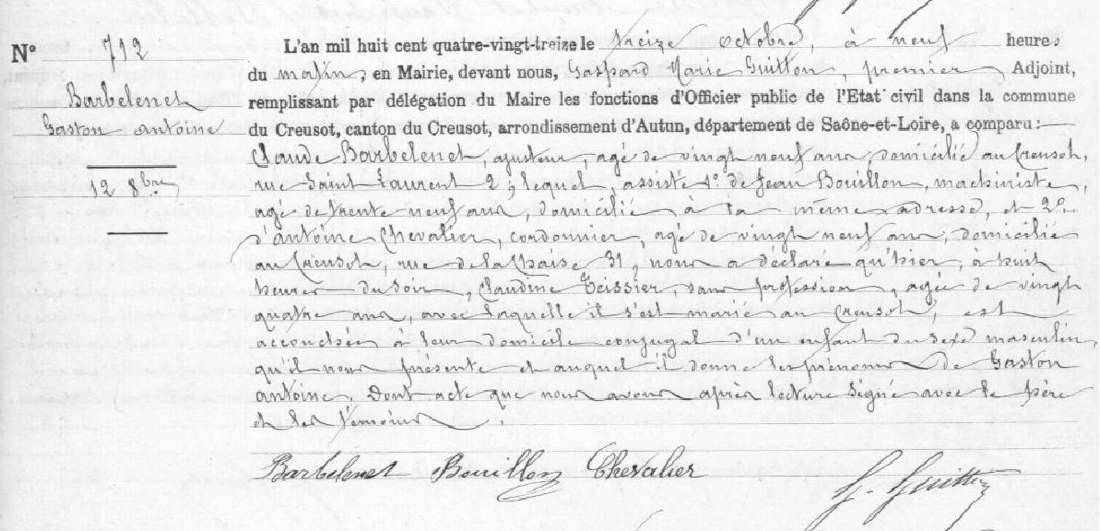 N° 712
Barbelenet
Gaston antoine
12 8bre
L'an mil huit cent quatre-vingt-treize le treize octobre, à neuf heures
du matin, en Mairie, devant nous, Gaspard Marie Guitton, premier Adjoint,
remplissant par délégation du Maire les fonctions d'Officier public de l'Etat civil dans la commune
du Creusot, canton du Creusot, arrondissement d'Autun, département de Saône-et-Loire, a comparu:
Claude Barbelenet, ajusteur, agé de vingt neuf ans, domicilié au Creusot,
rue Saint Laurent 2; lequel, assisté 1° de Jean Bouillon, machiniste,
agé de trente neuf ans, domicilié à la même adresse, et 2°
d'antoine Chevalier, cordonnier, agé de vingt neuf ans, domicilié
au Creusot, rue de la Chaise 31, nous a déclaré qu'hier, à huit
heures du soir, Claudine Teissier, sans profession, agée de vingt
quatre ans, avec laquelle il s'est marié au Creusot, est
accouchée à leur domicile conjugal d'un enfant du sexe masculin,
qu'il nous présente et auquel il donne les prénoms de Gaston
antoine. Dont acte que nous avons après lecture signé avec le père
et les témoins.
Barbelenet Bouillon Chevalier G. Guitton